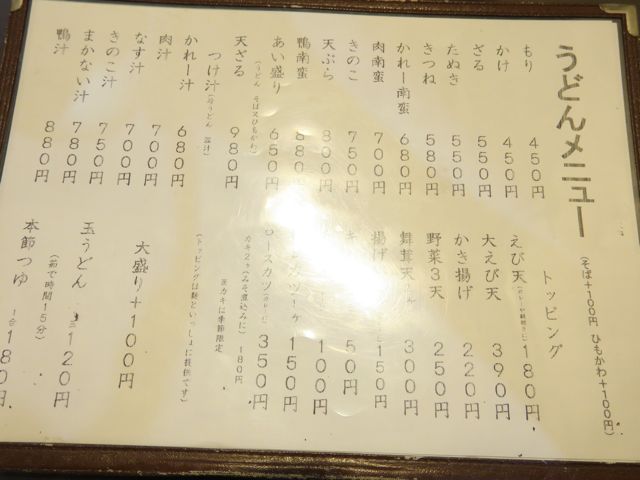 うどんメニュー
(そば+100円 ひもかわ+100円)
もり 450円
かけ 450円
ざる 550円
たぬき 550円
きつね 580円
かれー南蛮 680円
肉南蛮 700円
きのこ 750円
天ぷら 800円
鴨南蛮 880円
あい盛り 650円
(うどん そば又ひもかわ)
天ざる 980円
つけ汁
かれー汁 680円
肉汁 700円
なす汁 700円
きのこ汁 750円
まかない汁 780円
鴨汁 880円
トッピング
えび天 180円
大えび天 390円
かき揚げ 220円
野菜3天 250円
舞茸天 300円
揚げ 150円
50円
100円
カツ1ヶ 150円
ースカツ 350円
カキ2ヶ(みそ煮込みに) 180円
※カキは季節限定
(トッピングは麺といっしょに提供です)
大盛り+100円
玉うどん 120円
(茹で時間15分)
本節つゆ 180円